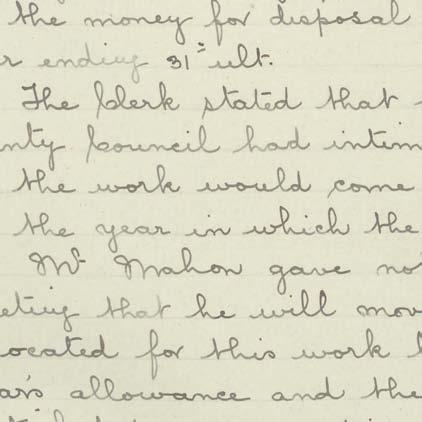 the money for disposal
r ending 31st ult.
The Clerk stated that
nty Council had intim
the work would come
the year in which the
Mr Mahon gave no
eting that he will mov
located for this work
ar's allowance and the